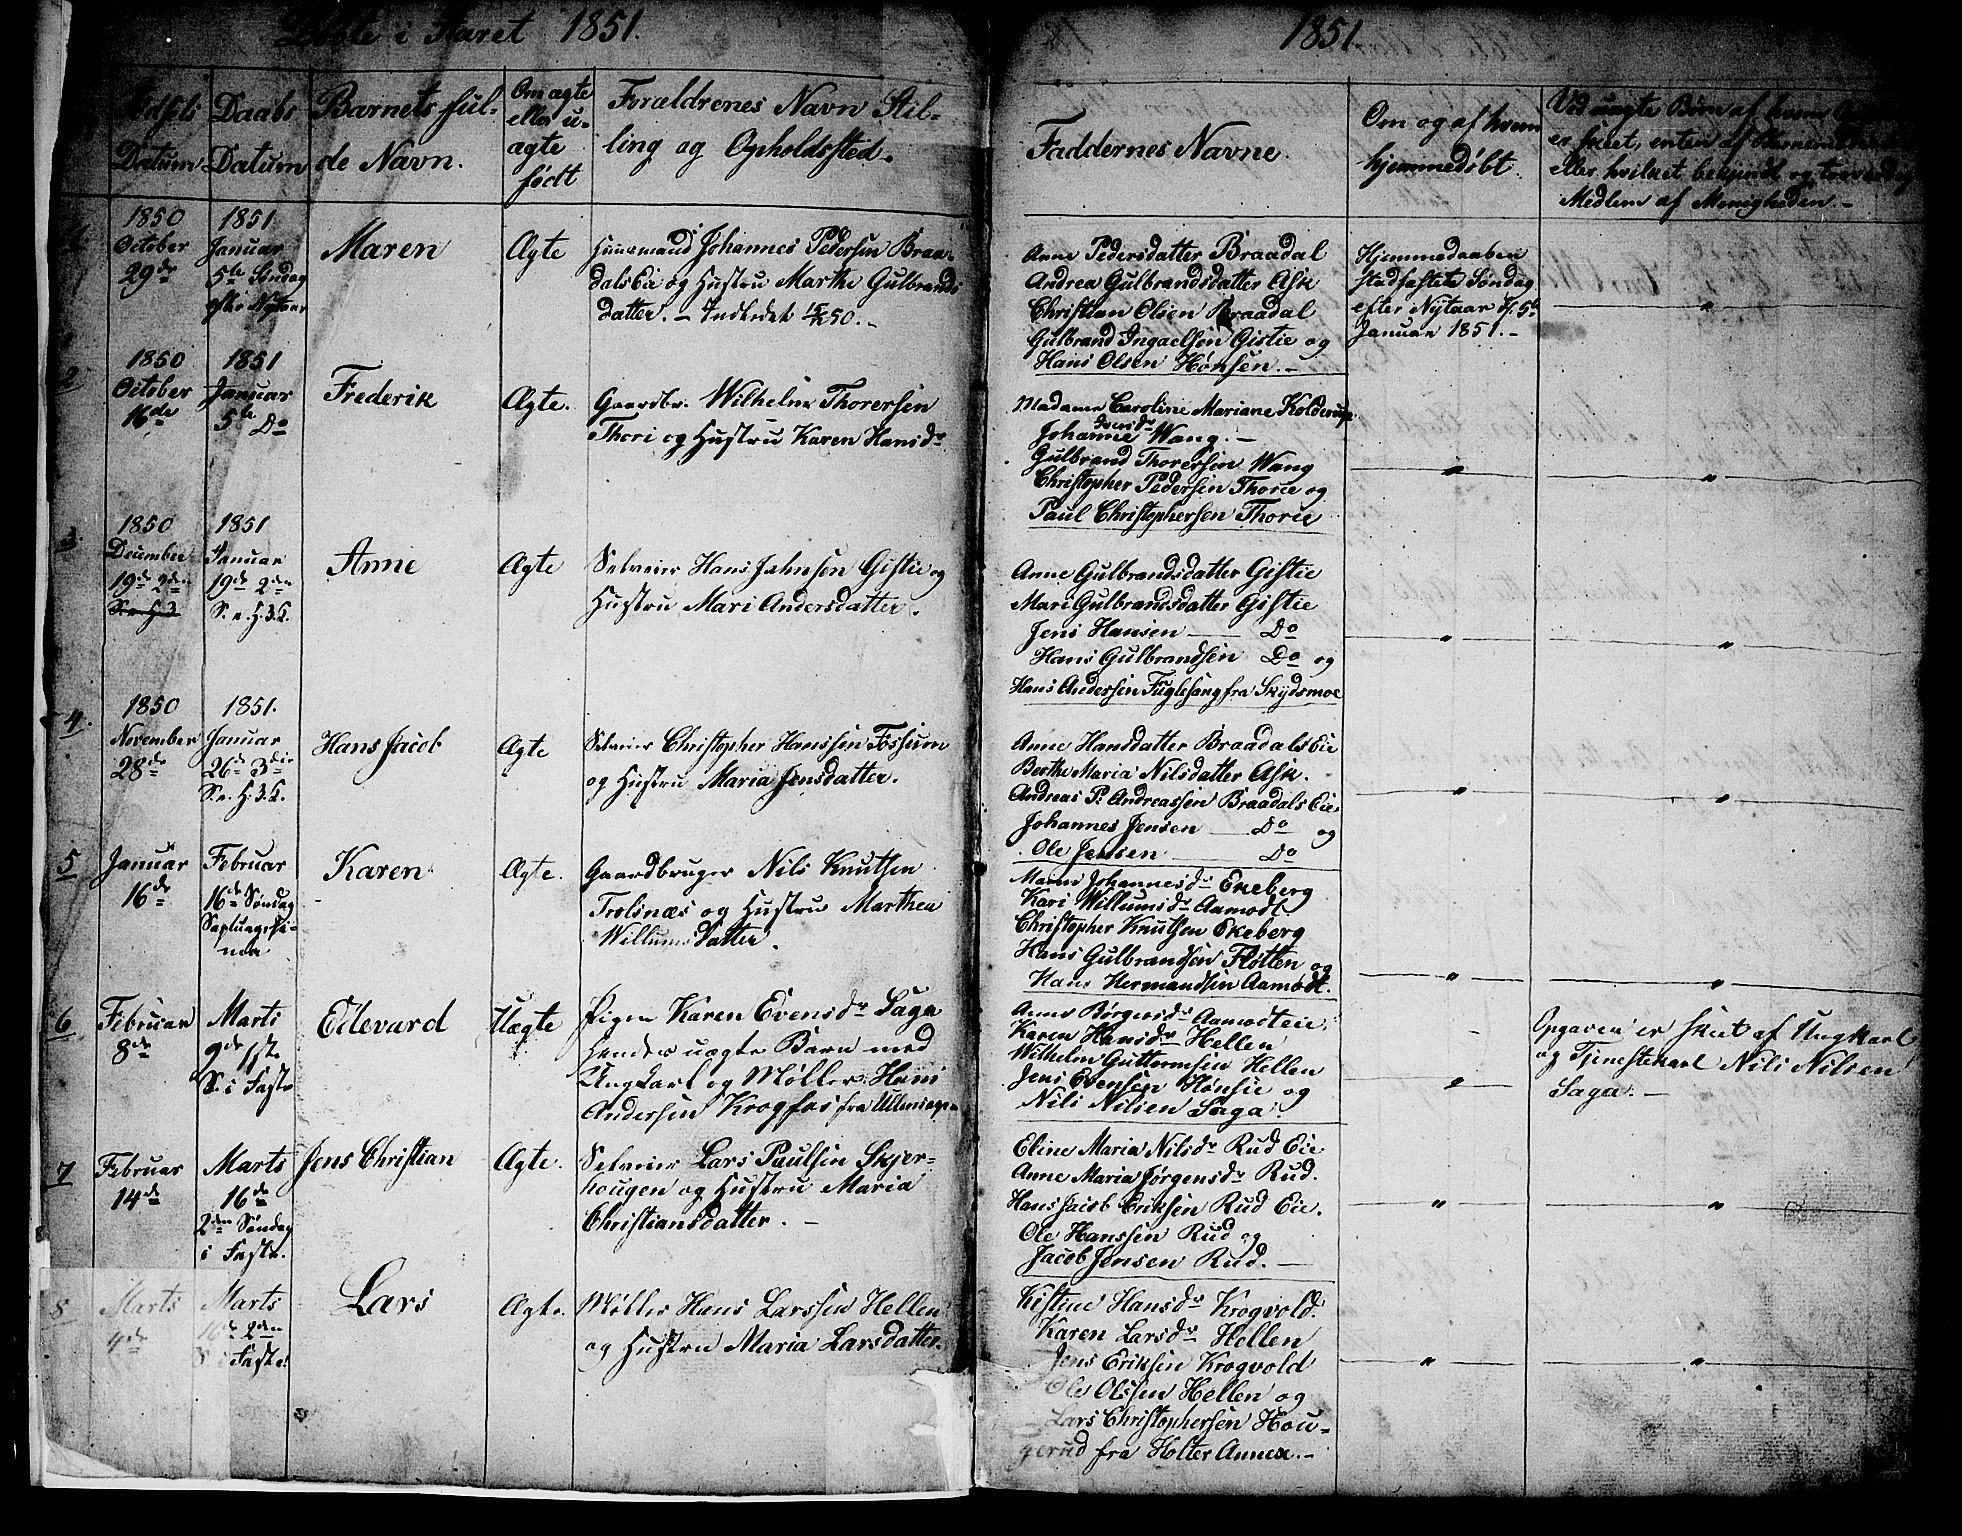 Døbte i Aaret 1851.
Fødsels Datum
Daabs Datum
Barnets ful-
de Navn.
Om ægte
eller u-
ægte
født
Forældrenes Navn Stil-
ling og Opholdssted.
1
1850
October
29de
1851
Januar
5te Søndag
efter Nytaar
Maren
Ægte
Huusmand Johannes Pedersen Braa-
dalseie og Hustru Marthe Gulbrands
datter. —
2
1850
October
16de
1851
Januar
5te Do
Frederik
Ægte.
Gaardbr. Wilhelm Thorersen
Thori og Hustru Karen Hansdr
3.
1850
December
19de 2den
S. e. H. 3
1851
Januar
19de 2den
S. e. H. 3. K.
Anne
Ægte
Selveier Hans Jahnsen Gistie og
Hustru Mari Andersdatter.
4.
1850
November
28de
1851.
Januar
26de 3die
S. e. H. 3. K.
Hans Jacob
Ægte
Selveier Christopher Hanssen Fossum
og Hustru Maria Jensdatter.
5
Januar
16de
Februar
16de Søndag
Septuagesi-
ma
Karen
Ægte.
Gaardbruger Nils Knutsen
Trolsnæs og Hustru Marthea
Willumsdatter.
6
Februar
8de
Marts
9de 1ste
S. i Faste
Edevard
Uægte
Pigen Karen Evensdr Saga
hendes uægte Barn med
Ungkarl og Møller Hans
Andersen Krogfos fra Ullensager
7
Februar
14de
Marts
16de
2den Søndag
i Faste.
Jens Christian
Ægte.
Selveier Lars Paulsen Skjer-
hougen og Hustru Maria
Christiansdatter. —
8
Marts
4de
Marts
16de 2den
S. i Faste.
Lars
Ægte.
Møller Hans Larssen Hellen
og Hustru Maria Larsdatter.
1851.
Faddernes Navne.
Om og af hvem
hjemmedøbt.
Ved uægte Børn af hvem
er skeet, enten af
eller hvilket bekjendt og troværdig
Medlem af Menigheden. —
Anne Pedersdatter Braadal
Andrea Gulbrandsdatter Ask
Christian Olsen Braadal
Gulbrand Ingaelsen Gistie og
Hans Olsen Hønsen. —
Hjemmedaaben
stadfæstet Søndag
efter Nytaar d. 5te
Januar 1851. —
"
Madame Caroline Mariane Kolderup
Johanne Wang. —
Gulbrand Thorersen Wang
Christopher Pedersen Thorie og
Paul Christophersen Thorie
" "
Anne Gulbrandsdatter Gistie
Mari Gulbrandsdatter Gistie
Jens Hansen — Do
Hans Gulbrandsen Do og
Hans Andersen Fuglesang fra Skydsmoe
" "
Anne Hansdatter Braadals Eie
Berthe Maria Nilsdatter Ask.
Andreas P. Andreassen Braadals Eie.
Johannes Jensen — Do og
Ole Jensen — Do
" "
Maren Johannesdr Ekeberg
Kari Willumsdr Aamodt
Christopher Knutsen Ekeberg
Hans Gulbrandsen Fløtten og
Hans Hermandsen Aamodt.
" "
Anne Børgersdr Aamodteie
Karen Hansdr Hellen
Wilhelm Guttormsen Hellen
Jens Evensen Hønsie og
Nils Nilsen Saga.
"
Opgaven er skeet af Ungkarl
og Tjenestekarl Nils Nilsen
Saga. —
Eline Maria Nilsdr Rud Eie
Anne Maria Jørgensdr Rud.
Hans Jacob Eriksen Rud Eie.
Ole Hanssen Rud og
Jacob Jensen Rud. —
" "
Kistine Hansdr Krogvold.
Karen Larsdr Hellen
Jens Eriksen Krogvold
Ole Olssen Hellen og
Lars Christophersen Hou-
gerud fra Holter Annex. —
" "